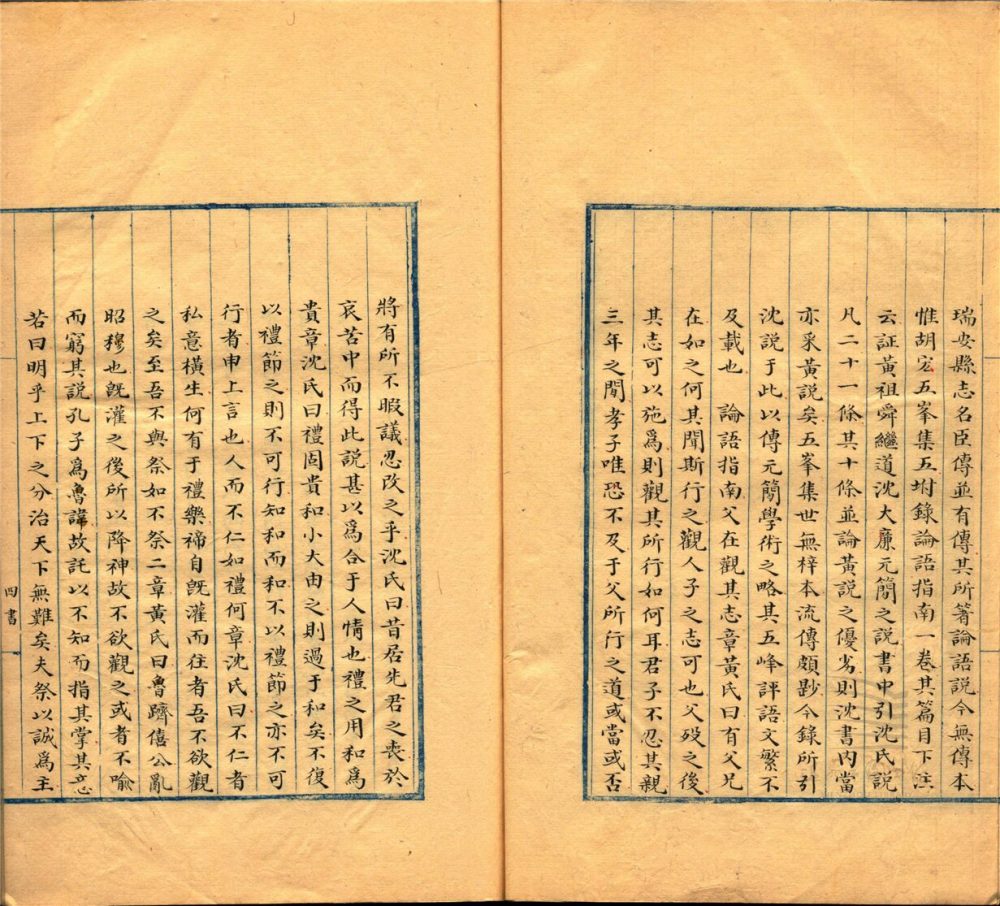 瑞安縣志名臣傳並有傳其所箸論語説今無傳本
惟胡宏五峯集五坿錄論語指南一卷其篇目下注
云証黄祖舜繼道沈大廉元簡之説書中引沈氏説
凡二十一條其十條並論黄説之優劣則沈書内當
亦采黄説矣五峯集世無梓本流傳頗尟今錄所引
沈説于此以傳元簡學術之略其五峰評語文繁不
及載也　論語指南父在觀其志章黄氏曰有父兄
在如之何其聞斯行之觀人子之志可也父歿之後
其志可以施爲則觀其所行如何耳君子不忍其親
三年之閒孝子唯恐不及于父所行之道或當或否
將有所不暇議忍改之乎沈氏曰昔居先君之喪於
哀苦中而得此説甚以爲合于人情也禮之用和爲
貴章沈氏曰禮固貴和小大由之則過于和矣不復
以禮節之則不可行知和而和不以禮節之亦不可
行者申上言也人而不仁如禮何章沈氏曰不仁者
私意橫生何有于禮樂禘自既灌而往者吾不欲觀
之矣至吾不與祭如不祭二章黄氏曰魯躋僖公亂
昭穆也既灌之後所以降神故不欲觀之或者不喻
而窮其説孔子爲魯諱故託以不知而指其掌其意
若曰明乎上下之分治天下無難矣夫祭以誠爲主
四書